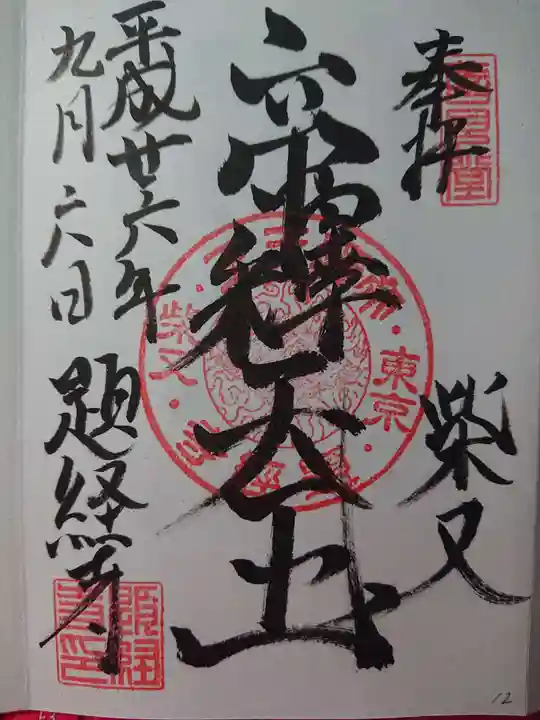 奉拝 柴又
帝釋天王
平成廿六年
九月六日 題経寺
東京
柴又
題経寺印
12